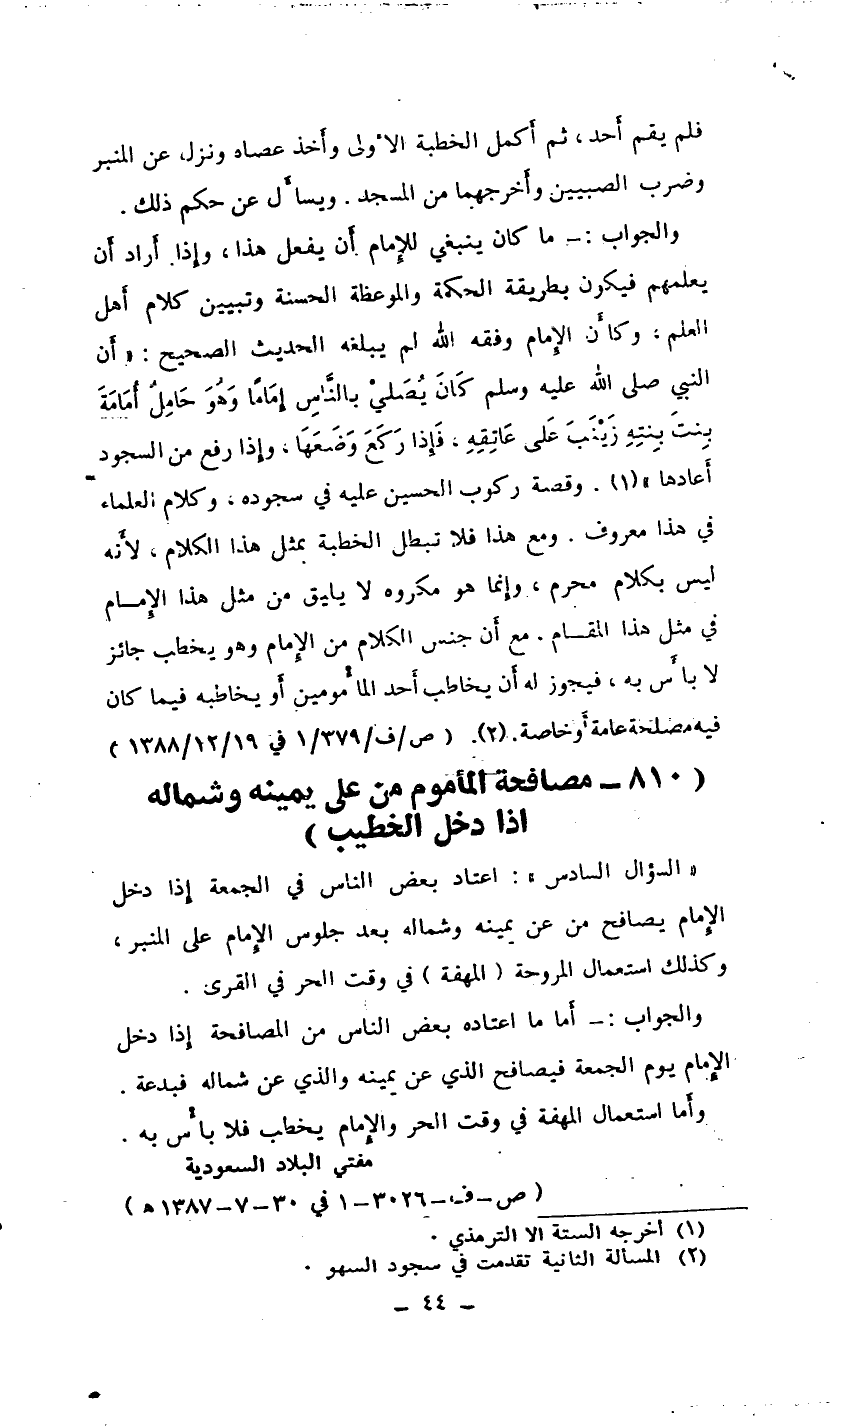 فلم يقم أحد، ثم أكمل الخطبة الأولى وأخذ عصاه ونزل عن المنبر
وضرب الصبيين وأخرجهما من المسجد . ويسأل عن حكم ذلك .
والجواب :ـ ما كان ينبغي للإمام أن يفعل هذا ، وإذا أراد أن
يعلمهم فيكون بطريقة الحكمة والموعظة الحسنة وتبيين كلام أهل
العلم ؛ وكأن الإمام وفقه الله لم يبلغه الحديث الصحيح : « أن
النبي صلى الله عليه وسلم كَانَ يُصَليْ بالنَّاسِ إمَامًا وَهُوَ حَامِلٌ أُمَامَةَ
بِنتَ بِنتِهِ زَيْنَبَ عَلى عَاتِقِهِ ، فَإذا رَكَعَ وَضَعَهَا ، وإذا رفع من السجود
أعادها »(١) . وقصة ركوب الحسين عليه في سجوده ، وكلام العلماء
في هذا معروف . ومع هذا فلا تبطل الخطبة بمثل هذا الكلام ، لأنه
ليس بكلام محرم ، وإنما هو مكروه لا يليق من مثل هذا الإمـام
في مثل هذا المقـام . مع أن جنس الكلام من الإمام وهو يخطب جائز
لا بأس به ، فيجوز له أن يخاطب أحد المأمومين أو يخاطبه فيما كان
فيه مصلحة عامة أو خاصة. (٢). ( ص/ف/١/٣٧٩ في ١٣٨٨/١٢/١٩ )
( ٨١٠ ـ مصافحة المأموم من على يمينه وشماله
اذا دخل الخطيب )
« السؤال السادس » : اعتاد بعض الناس في الجمعة إذا دخل
الإمام يصافح من عن يمينه وشماله بعد جلوس الإمام على المنبر ،
وكذلك استعمال المروحة ( المهفة ) في وقت الحر في القرى .
والجواب :ـ أما ما اعتاده بعض الناس من المصافحة إذا دخل
الإمام يوم الجمعة فيصافح الذي عن يمينه والذي عن شماله فبدعة .
وأما استعمال المهفة في وقت الحر والإمام يخطب فلا بأس به .
مفتي البلاد السعودية
( ص ـ ف ـ ٣٠٢٦ ـ ١ في ٣٠ ـ ٧ ـ ١٣٨٧ ه )
(١) أخرجه الستة الا الترمذي .
(٢) المسألة الثانية تقدمت في سجود السهو .
ـ ٤٤ ـ